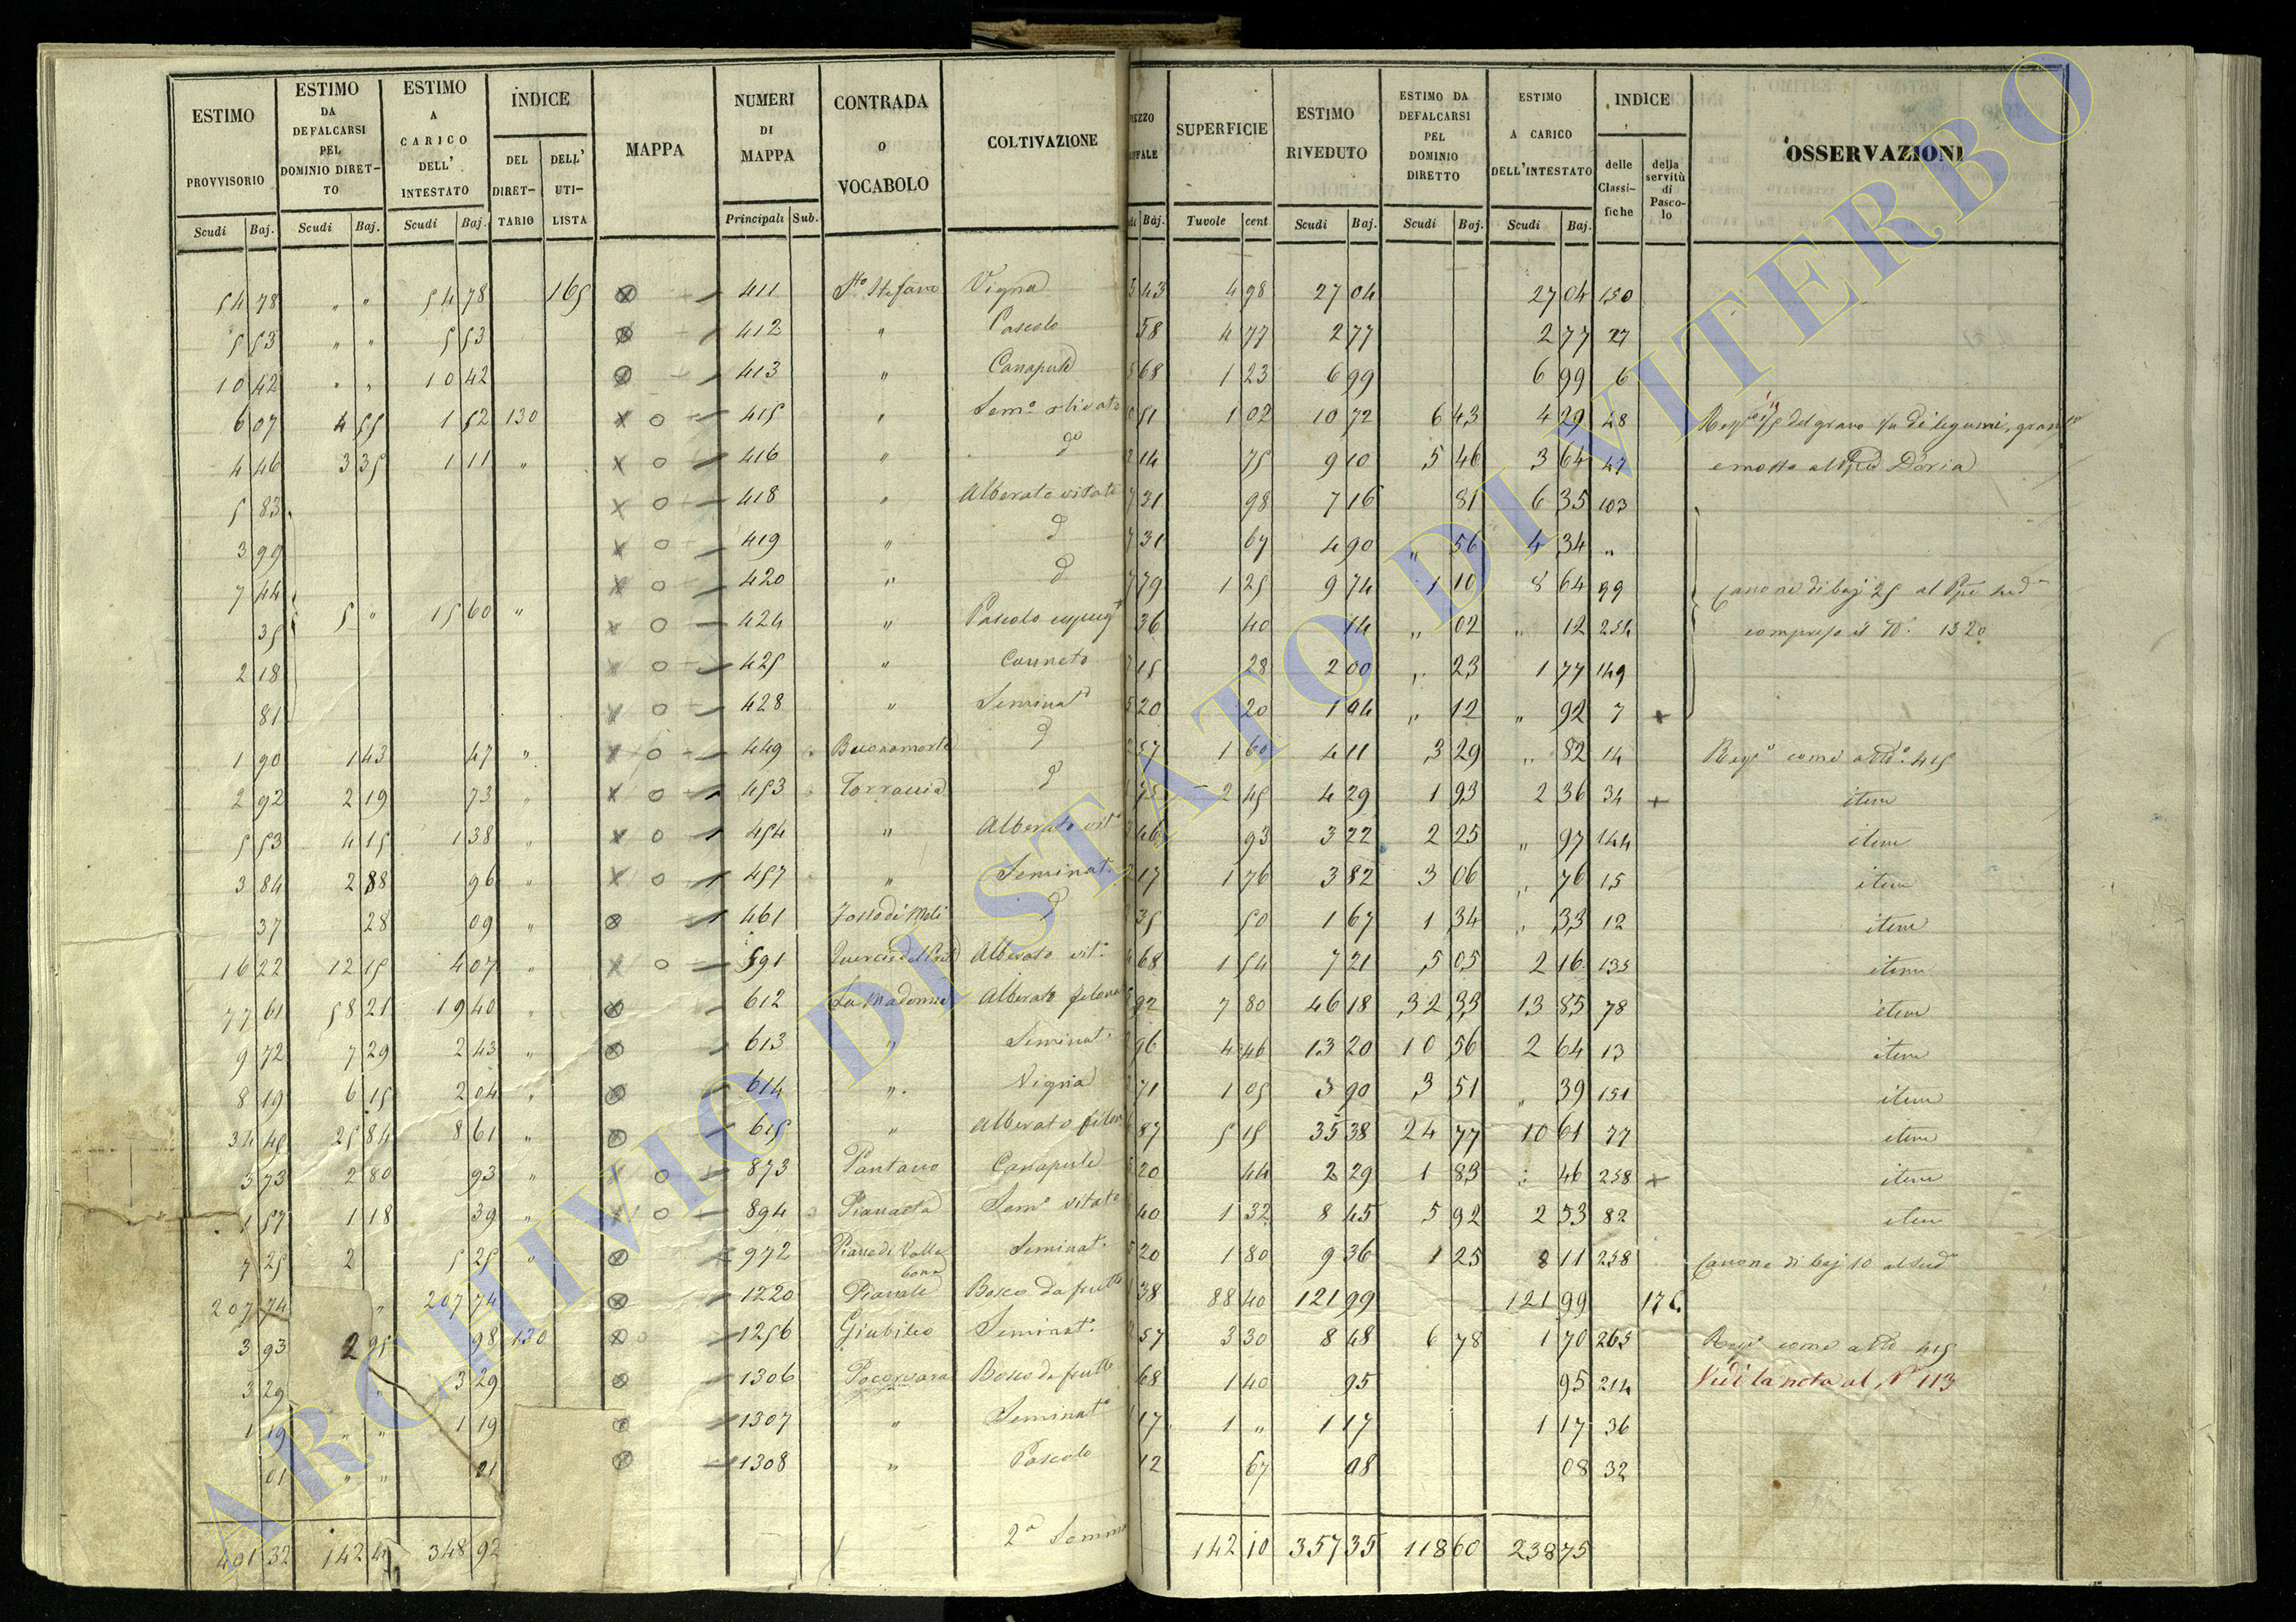 ESTIMO PROVVISORIO Scudi Baj. | ESTIMO DA DEFALCARSI PEL DOMINIO DIRETTO Scudi Baj. | ESTIMO A CARICO DELL' INTESTATO Scudi Baj. | INDICE DEL DIRETTARIO DELL' UTILISTA | MAPPA | NUMERI DI MAPPA Principali Sub. | CONTRADA O VOCABOLO | COLTIVAZIONE | SUPERFICIE Tavole cent | ESTIMO RIVEDUTO Scudi Baj. | ESTIMO DA DEFALCARSI PEL DOMINIO DIRETTO Scudi Baj. | ESTIMO A CARICO DELL'INTESTATO Scudi Baj. | INDICE delle Classifiche della servitù di Pascolo | OSSERVAZIONI
54 78 " " 54 78 165 411 Sto Stefano Vigna 43 4 98 27 04 27 04 150
5 53 " " 5 53 412 " Pascolo 58 4 77 2 77 2 77 27
10 42 " " 10 42 413 " Canapule 68 1 23 6 99 6 99 6
6 07 4 55 1 52 130 415 " Semo olivato 51 1 02 10 72 6 43 4 29 48 del grano di legumi,
4 46 3 35 1 11 " 416 " do 14 75 9 10 5 46 3 64 47 Doria
5 83 418 " Alberato vitato 31 98 7 16 81 6 35 103
3 99 419 " d 31 67 4 90 " 56 4 34 "
7 44 420 " d 79 1 25 9 74 1 10 8 64 99 Canone di baj 25 al
35 5 " 15 60 " 424 " Pascolo 36 40 14 " 02 " 12 254 compreso il No. 1320
2 18 425 " Canneto 15 28 2 00 " 23 1 77 149
81 428 " Seminato 20 20 1 04 " 12 " 92 7 +
1 90 1 43 47 " 449 Buonamorte d 57 1 60 4 11 3 29 " 82 14 come al No. 415
2 92 2 19 73 " 453 Torraccia d 75 2 45 4 29 1 93 2 36 34 + item
5 53 4 15 1 38 " 454 " Alberato vito 46 93 3 22 2 25 " 97 144 item
3 84 2 88 96 " 457 " Seminat. 17 1 76 3 82 3 06 " 76 15 item
37 28 09 " 461 d 35 50 1 67 1 34 " 33 12 item
16 22 12 15 4 07 " 591 Alberato vit. 68 1 54 7 21 5 05 2 16 135 item
77 61 58 21 19 40 " 612 La Madonna Alberato 92 7 80 46 18 32 33 13 85 78 item
9 72 7 29 2 43 " 613 " Seminat. 96 4 46 13 20 10 56 2 64 13 item
8 19 6 15 2 04 " 614 " Vigna 71 1 05 3 90 3 51 " 39 151 item
34 45 25 84 8 61 " 615 " Alberato 87 5 15 35 38 24 77 10 61 77 item
3 73 2 80 93 " 873 Pantano Canapule 20 44 2 29 1 83 46 258 + item
1 57 1 18 39 " 894 Semo vitato 40 1 32 8 45 5 92 2 53 82 item
7 25 2 5 25 " 972 Piane di Valle bona Seminat. 20 1 80 9 36 1 25 8 11 258 Canone di baj 10 al
207 74 " 207 74 1220 Pianale Bosco da frutto 38 88 40 121 99 121 99 176
3 93 2 95 98 130 1256 Giubileo Seminat. 57 3 30 8 48 6 78 1 70 265 come al No 415
3 29 " 3 29 1306 Bosco da frutto 68 1 40 95 95 214 Vedi la nota al No 113
1 19 " " 1 19 1307 " Seminato 17 1 " 1 17 1 17 36
01 " " 01 1308 " Pascolo 12 67 08 08 32
401 32 142 348 92 2a Somma 142 10 357 35 118 60 238 75
ARCHIVIO DI STATO DI VITERBO